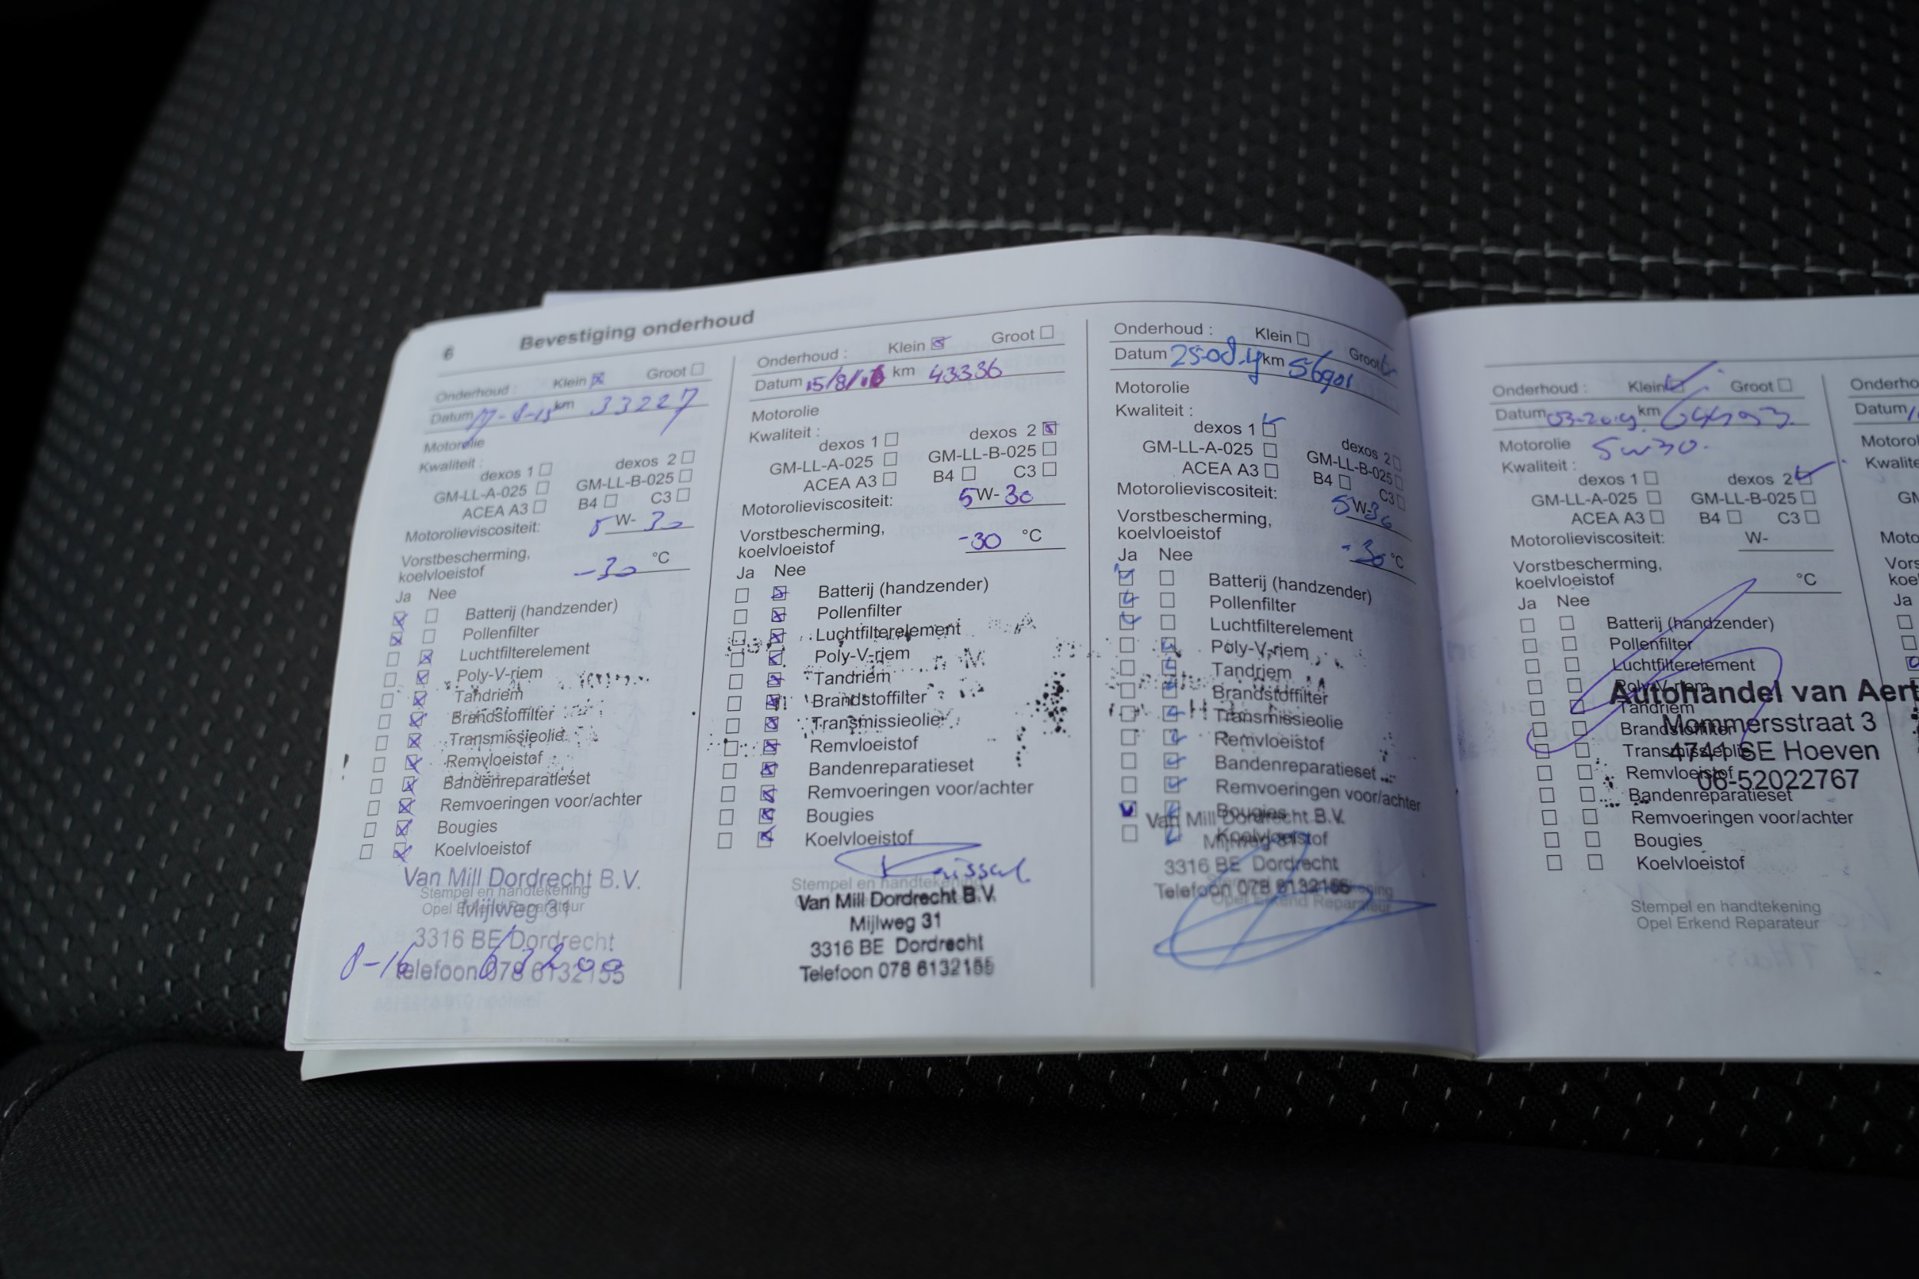 6 Bevestiging onderhoud
Onderhoud : Klein Groot
Datum 17-8-15 km 33227
Motorolie
Kwaliteit :
dexos 1 dexos 2
GM-LL-A-025 GM-LL-B-025
ACEA A3 B4 C3
Motorolieviscositeit: 5 W- 30
Vorstbescherming,
koelvloeistof -30 °C
Ja Nee
Batterij (handzender)
Pollenfilter
Luchtfilterelement
Poly-V-riem
Tandriem
Brandstoffilter
Transmissieolie
Remvloeistof
Bandenreparatieset
Remvoeringen voor/achter
Bougies
Koelvloeistof
Van Mill Dordrecht B.V.
Stempel en handtekening
Opel Erkend Reparateur
Mijlweg 31
3316 BE Dordrecht
Telefoon 078 6132155
8-16
Onderhoud : Klein Groot
Datum 15/8/16 km 43336
Motorolie
Kwaliteit :
dexos 1 dexos 2
GM-LL-A-025 GM-LL-B-025
ACEA A3 B4 C3
Motorolieviscositeit: 5 W- 30
Vorstbescherming,
koelvloeistof -30 °C
Ja Nee
Batterij (handzender)
Pollenfilter
Luchtfilterelement
Poly-V-riem
Tandriem
Brandstoffilter
Transmissieolie
Remvloeistof
Bandenreparatieset
Remvoeringen voor/achter
Bougies
Koelvloeistof
Stempel en handtekening
Van Mill Dordrecht B.V.
Mijlweg 31
3316 BE Dordrecht
Telefoon 078 6132155
Onderhoud : Klein Groot
Datum 25-08-17 km 56901
Motorolie
Kwaliteit :
dexos 1 dexos 2
GM-LL-A-025 GM-LL-B-025
ACEA A3 B4 C3
Motorolieviscositeit: 5 W- 30
Vorstbescherming,
koelvloeistof -30 °C
Ja Nee
Batterij (handzender)
Pollenfilter
Luchtfilterelement
Poly-V-riem
Tandriem
Brandstoffilter
Transmissieolie
Remvloeistof
Bandenreparatieset
Remvoeringen voor/achter
Bougies
Koelvloeistof
Van Mill Dordrecht B.V.
Mijlweg 31
3316 BE Dordrecht
Telefoon 078 6132155
Opel Erkend Reparateur
Onderhoud : Klein Groot
Datum 03-2019 km
Motorolie 5w30.
Kwaliteit :
dexos 1 dexos 2
GM-LL-A-025 GM-LL-B-025
ACEA A3 B4 C3
Motorolieviscositeit: W-
Vorstbescherming,
koelvloeistof °C
Ja Nee
Batterij (handzender)
Pollenfilter
Luchtfilterelement
Poly-V-riem
Tandriem
Brandstoffilter
Transmissieolie
Remvloeistof
Bandenreparatieset
Remvoeringen voor/achter
Bougies
Koelvloeistof
Autohandel van Aert
Mommersstraat 3
4741 SE Hoeven
06-52022767
Stempel en handtekening
Opel Erkend Reparateur
Onderho
Datum
Motorol
Kwalite
GM
Moto
Vors
koel
Ja